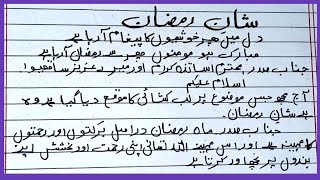 شان رمضان
دل میں پھر خوشیوں کا پیغام آ رہا ہے
مبارک ہو مومنوں پھر سے رمضان آ رہا ہے
جناب صدر محترم اساتذہ کرام اور میرے عزیز ساتھیوں!
اسلام علیکم
آج مجھے جس موضوع پر لب کشائی کا موقع دیا گیا ہے وہ
ہے شان رمضان۔
جناب صدر ماہ رمضان دراصل برکتوں اور رحمتوں
کا مہینہ ہے اور اس مہینے اللہ تعالیٰ اپنی رحمت اور بخشش اپنے
بندوں پر نچھاور کرتا ہے